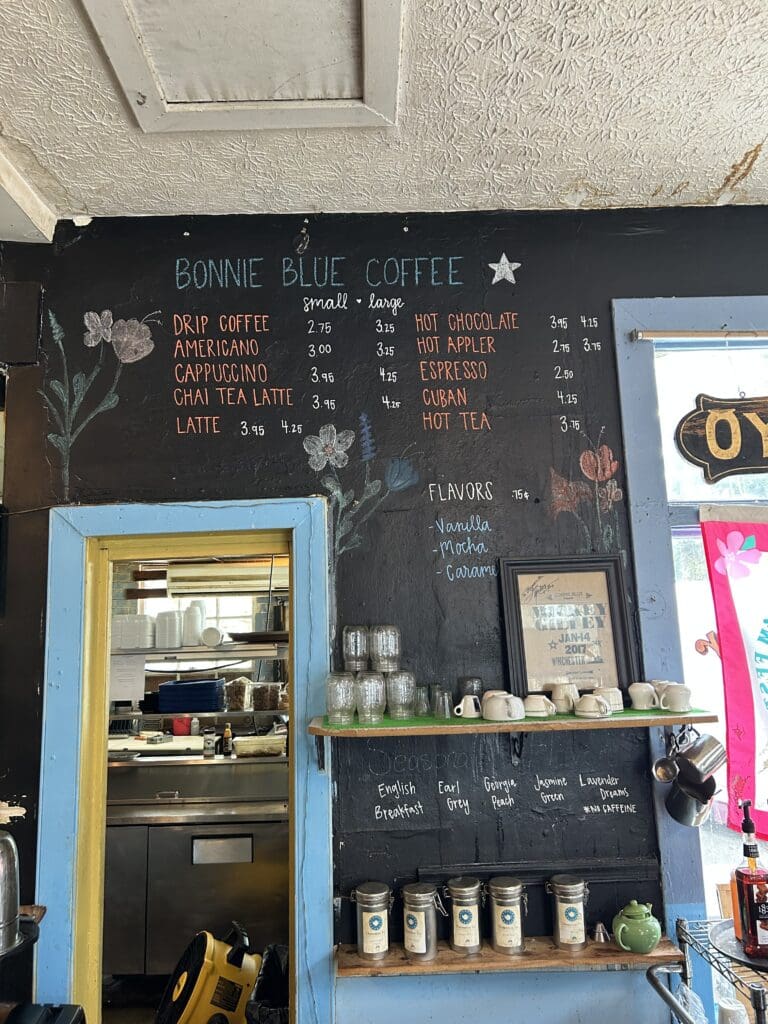 BONNIE BLUE COFFEE
small large
DRIP COFFEE 2.75 3.25
AMERICANO 3.00 3.25
CAPPUCCINO 3.95 4.25
CHAI TEA LATTE 3.95 4.25
LATTE 3.95 4.25
HOT CHOCOLATE 3.95 4.25
HOT APPLER 2.75 3.75
ESPRESSO 2.50
CUBAN 4.25
HOT TEA 3.75
FLAVORS .75¢
-Vanilla
-Mocha
-Carame
OY
JAN·14
2017
WINCHESTER
English Breakfast
Earl Grey
Georgia Peach
Jasmine Green
Lavender Dreams
*NO CAFFEINE